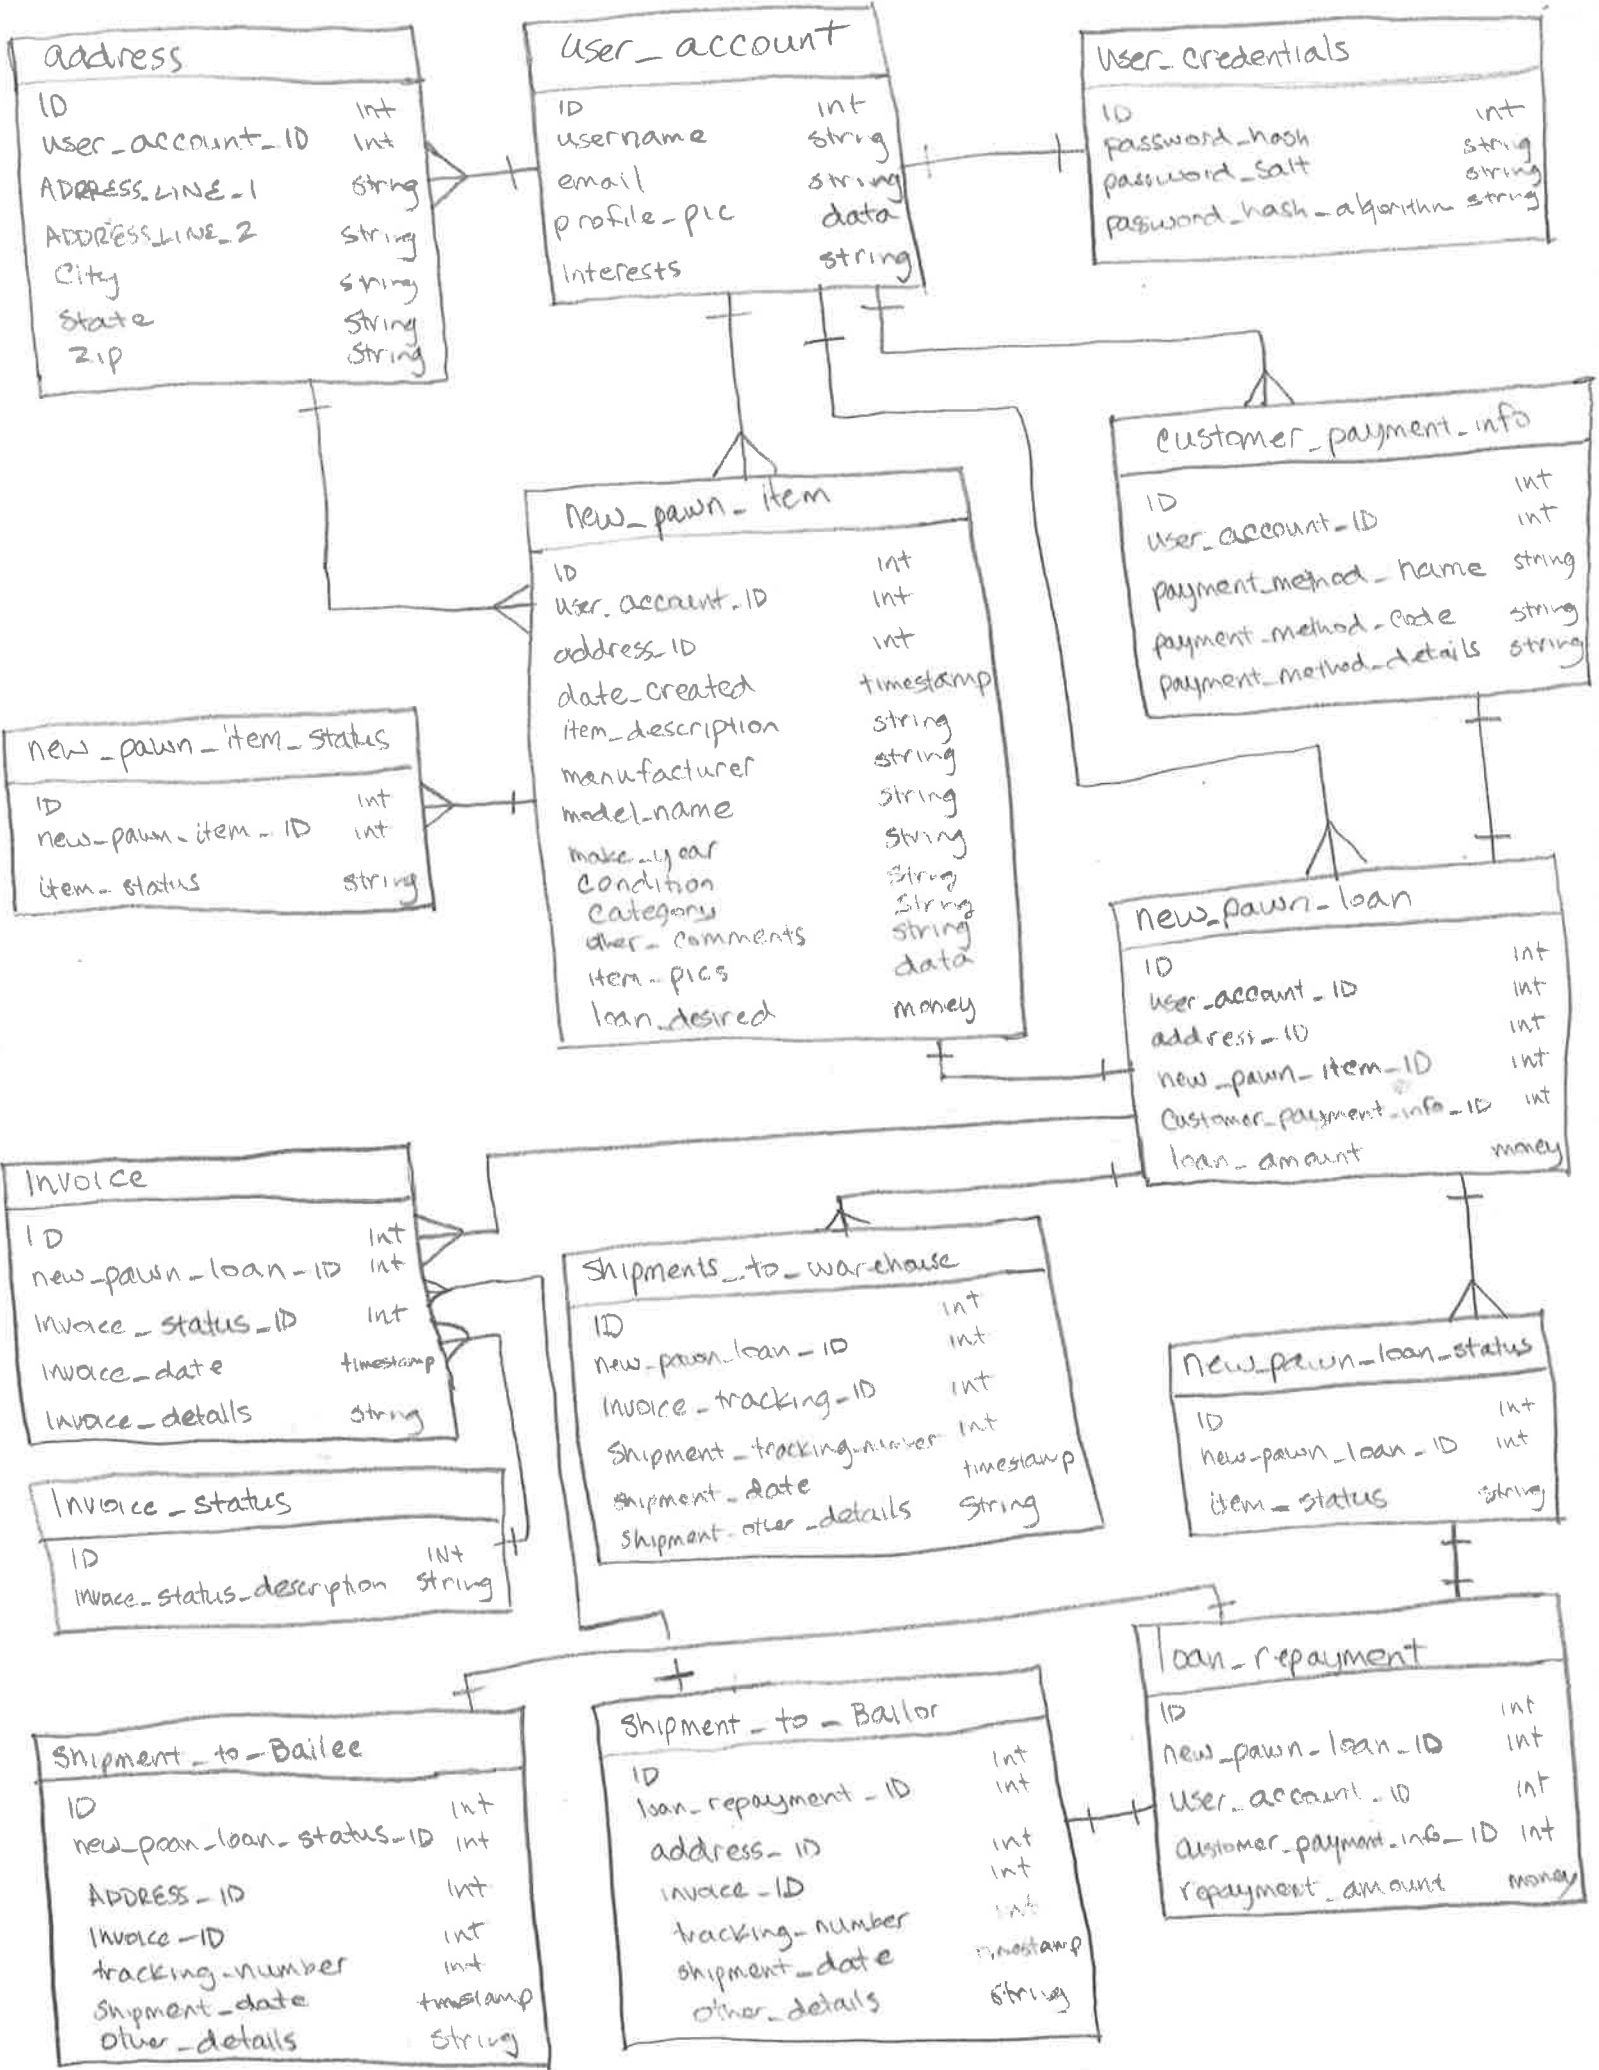 address
ID Int
user_account_ID Int
ADDRESS_LINE_1 string
ADDRESS_LINE_2 string
City string
State string
Zip string
user_account
ID int
username string
email string
profile_pic data
Interests string
user_credentials
ID int
password_hash string
password_salt string
password_hash_algorithm string
customer_payment_info
ID int
user_account_ID int
payment_method_name string
payment_method_code string
payment_method_details string
new_pawn_item
ID int
user_account_ID int
address_ID int
date_created timestamp
item_description string
manufacturer string
model_name string
make_year string
condition string
category string
other_comments string
item_pics data
loan_desired money
new_pawn_item_status
ID int
new_pawn_item_ID int
item_status string
new_pawn_loan
ID int
user_account_ID int
address_ID int
new_pawn_item_ID int
Customer_payment_info_ID int
loan_amount money
Invoice
ID Int
new_pawn_loan_ID Int
Invoice_status_ID Int
Invoice_date timestamp
Invoice_details string
Shipments_to_warehouse
ID int
new_pawn_loan_ID int
Invoice_tracking_ID int
Shipment_tracking_number int
shipment_date timestamp
Shipment_other_details String
new_pawn_loan_status
ID int
new_pawn_loan_ID int
item_status string
Invoice_status
ID INt
invoice_status_description string
loan_repayment
ID int
new_pawn_loan_ID int
user_account_ID int
customer_payment_info_ID int
repayment_amount money
Shipment_to_Bailee
ID int
new_poan_loan_status_ID int
ADDRESS_ID int
Invoice_ID int
tracking_number int
Shipment_date timestamp
other_details String
Shipment_to_Bailor
ID Int
loan_repayment_ID int
address_ID int
invoice_ID int
tracking_number int
shipment_date timestamp
other_details string